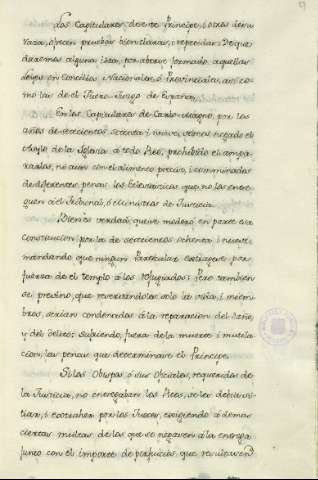 9
Los Capitulares de este Principe, i otros de su
raza, ofrecen pruebas bien claras, i repetidas: De que
daremos alguna idea, por aberse formado aquellas
leyes en Concilios Nacionales, o Provinciales, asi co-
mo las de el Fuero-Juzgo de España.
En los Capitulares de Carlo-Magno, por los
años de setecientos setenta i nueve, vemos negado el
Asylo de la Iglesia à todo Reo, prohibido el ampa-
rarlos, no aun con el alimento preciso, i comminados
de diferentes penas los Eclesiasticos, que no los entre-
guen à el Tribunal, ò Ministros de Justicia.
Bien es verdad, que se moderò en parte esta
Constitucion por la de setecientos ochenta i nueve
mandando que ningun Particular extragese por
fuerza de el templo à los refugiados: Pero tambien
se previno, que reservandoles solo la vida, i miem-
bros, serian condenados à la reparacion del daño
y del delito: Sufriendo, fuera de la muerte i mutila-
cion, las penas que determinare el Principe.
Si los Obispos ò sus Oficiales, requeridos de
la Justicia, no entregaban los Reos, se les debia
i por los Jueces, exigiendo à demas
ciertas multas de los que se negasen à la entrega
junto con el importe de perjuicios, que resultasen